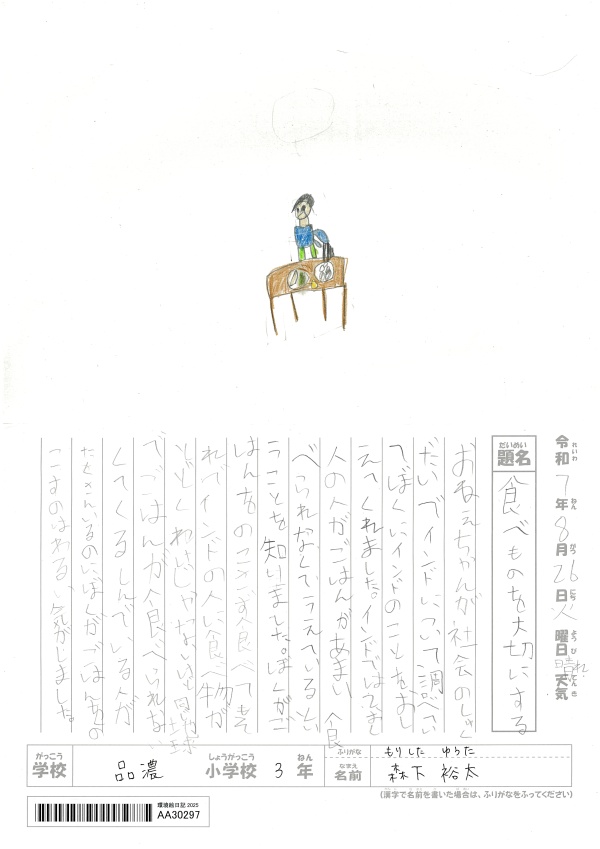 令和7年8月26日火曜日天気晴れ
れいわ ねん がつ にち ようび てんき
だいめい
題名 食べものを大切にする
おねえちゃんが社会のしゅく
だいでインドについて調べてい
てぼくにインドのことをおし
えてくれました。インドではまずし
人の人がごはんがあまい 食
べられなくてうえているとい
うことを知りました。ぼくがご
はんをのこさず食べても
れでインドの人に食べ物が
とどくわけじゃないけど地球
でごはんが食べられない
くてくるしんでいる人が
たくさんいるのにぼくがごはんをの
こすのはわるい気がしました。
がっこう
学校 品濃 小学校 3年
しょうがっこう ねん
ふりがな もりした ゆうた
なまえ
名前 森下 裕太
(漢字で名前を書いた場合は、ふりがなをふってください)
環境絵日記2025
AA30297